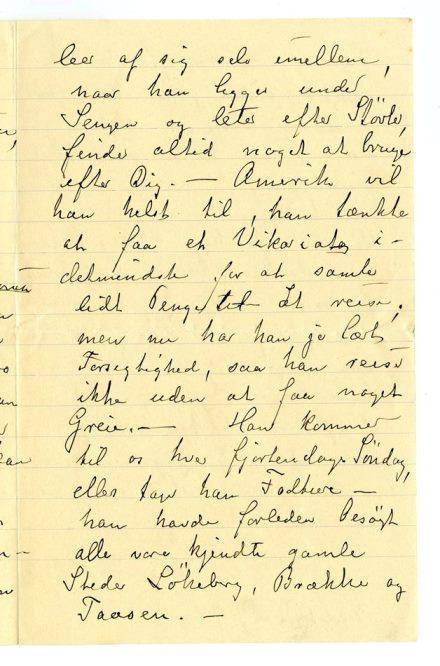 leer af sig selv imellem,
naar han ligger under
Sengen og leter efter Støvler,
finder altid noget at bruge
efter Dig. — Amerika vil
han helst til, han tænkte
at faa et Vikariat i-
detmindste for at samle
lidt Penge til at reise;
men nu har han jo lært
Forsigtighed, saa han reiser
ikke uden at faa noget
Greie. — Han kommer
til os hver fjortendags Söndag,
eller tager han Fodture —
han havde forleden besøgt
alle vore kjendte gamle
Steder Lökeberg, Brække og
Taasen. —